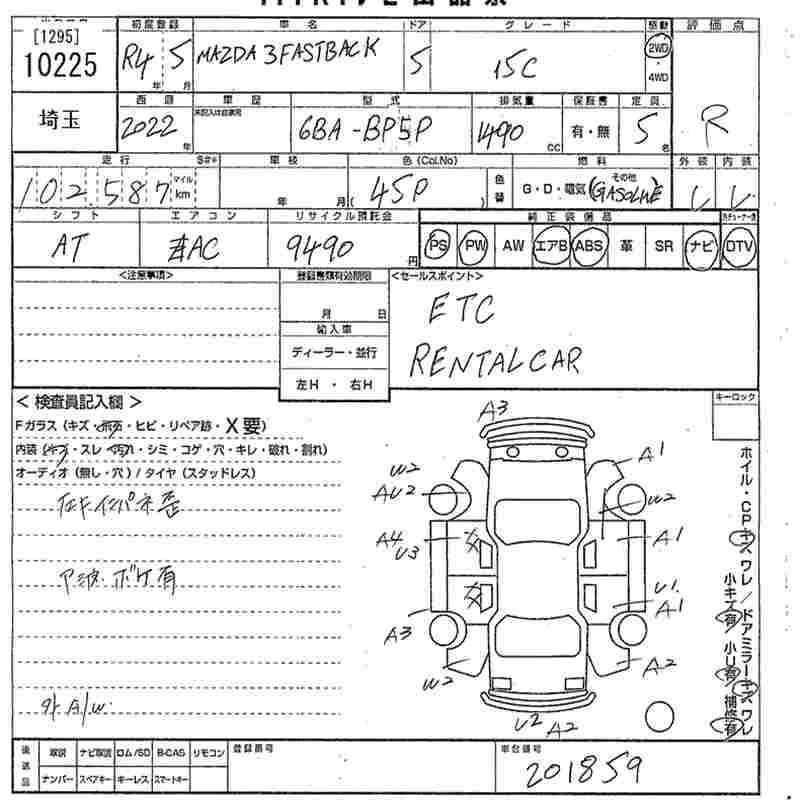 [1295]
10225
埼玉
初度登録 車名 ドア グレード 駆動 評価点
R4 5 MAZDA 3FASTBACK 5 15C 2WD
年 月 4WD
西暦 車歴 型式 排気量 保証書 定員
未記入は自家用
2022 6BA-BP5P 1490 有・無 5 R
年 CC 名
走行 S#* 車検 色(Col.No) 燃料 外装 内装
102,587 マイル km 年 月 ( 45P ) 色替 G・D・電気 その他 (GASOLINE)
シフト エアコン リサイクル預託金 純正装備品
AT AC 9490 円 PS PW AW エアB ABS 革 SR ナビ DTV
<注意事項> 登録書類有効期限 <セールスポイント>
月 日 ETC
輸入車
ディーラー・並行 RENTALCAR
左H・右H
<検査員記入欄> キーロック
Fガラス(キズ・飛石・ヒビ・リペア跡・X要)
内装(キズ・スレ・汚れ・シミ・コゲ・穴・キレ・破れ・割れ)
オーディオ(無し・穴)/タイヤ(スタッドレス)
右Fインパネ歪
ア波・ボケ有
外A/W
A3
A1
W2
AU2
W2
A4
U3
A1
U1
A1
A3
W2
A2
U2 A2
ホイル・CPキズワレ/ドアミラーキズワレ
小キズ有/小U有/補修有
後送品 取説 ナビ取説 ロム/SD B-CAS リモコン 登録番号 車台番号
ナンバー スペアキー キーレス スマートキー 201859